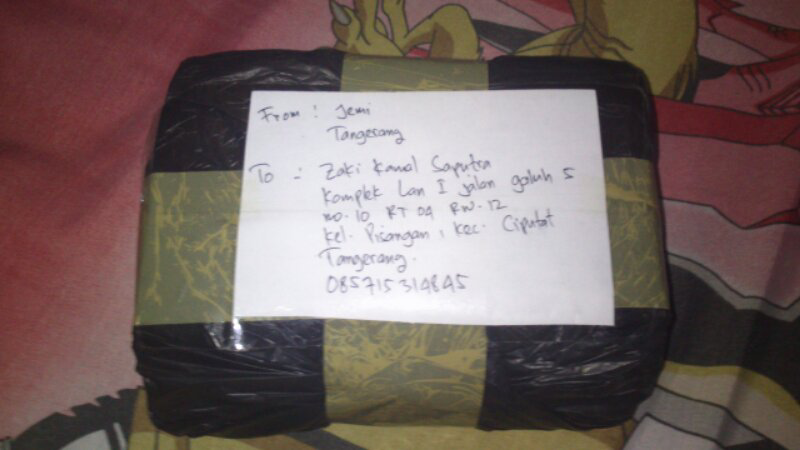 From : Jemi
Tangerang
To : Zaki Kamal Saputra
Komplek Lan I jalan galuh 5
no. 10 RT 04 RW. 12
Kel. Pisangan, Kec. Ciputat
Tangerang.
085715314845